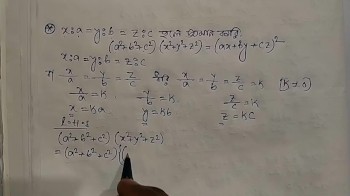 x:a = y:b = z:c হলে প্রমাণ করো
(a²+b²+c²) (x²+y²+z²) = (ax+by+cz)²
x:a = y:b = z:c
বা x/a = y/b = z/c x/a = y/b = z/c = K [K≠0]
x/a = K y/b = K z/c = K
x = Ka y = Kb z = KC
L.H.S
(a²+b²+c²) (x²+y²+z²)
= (a²+b²+c²) {(